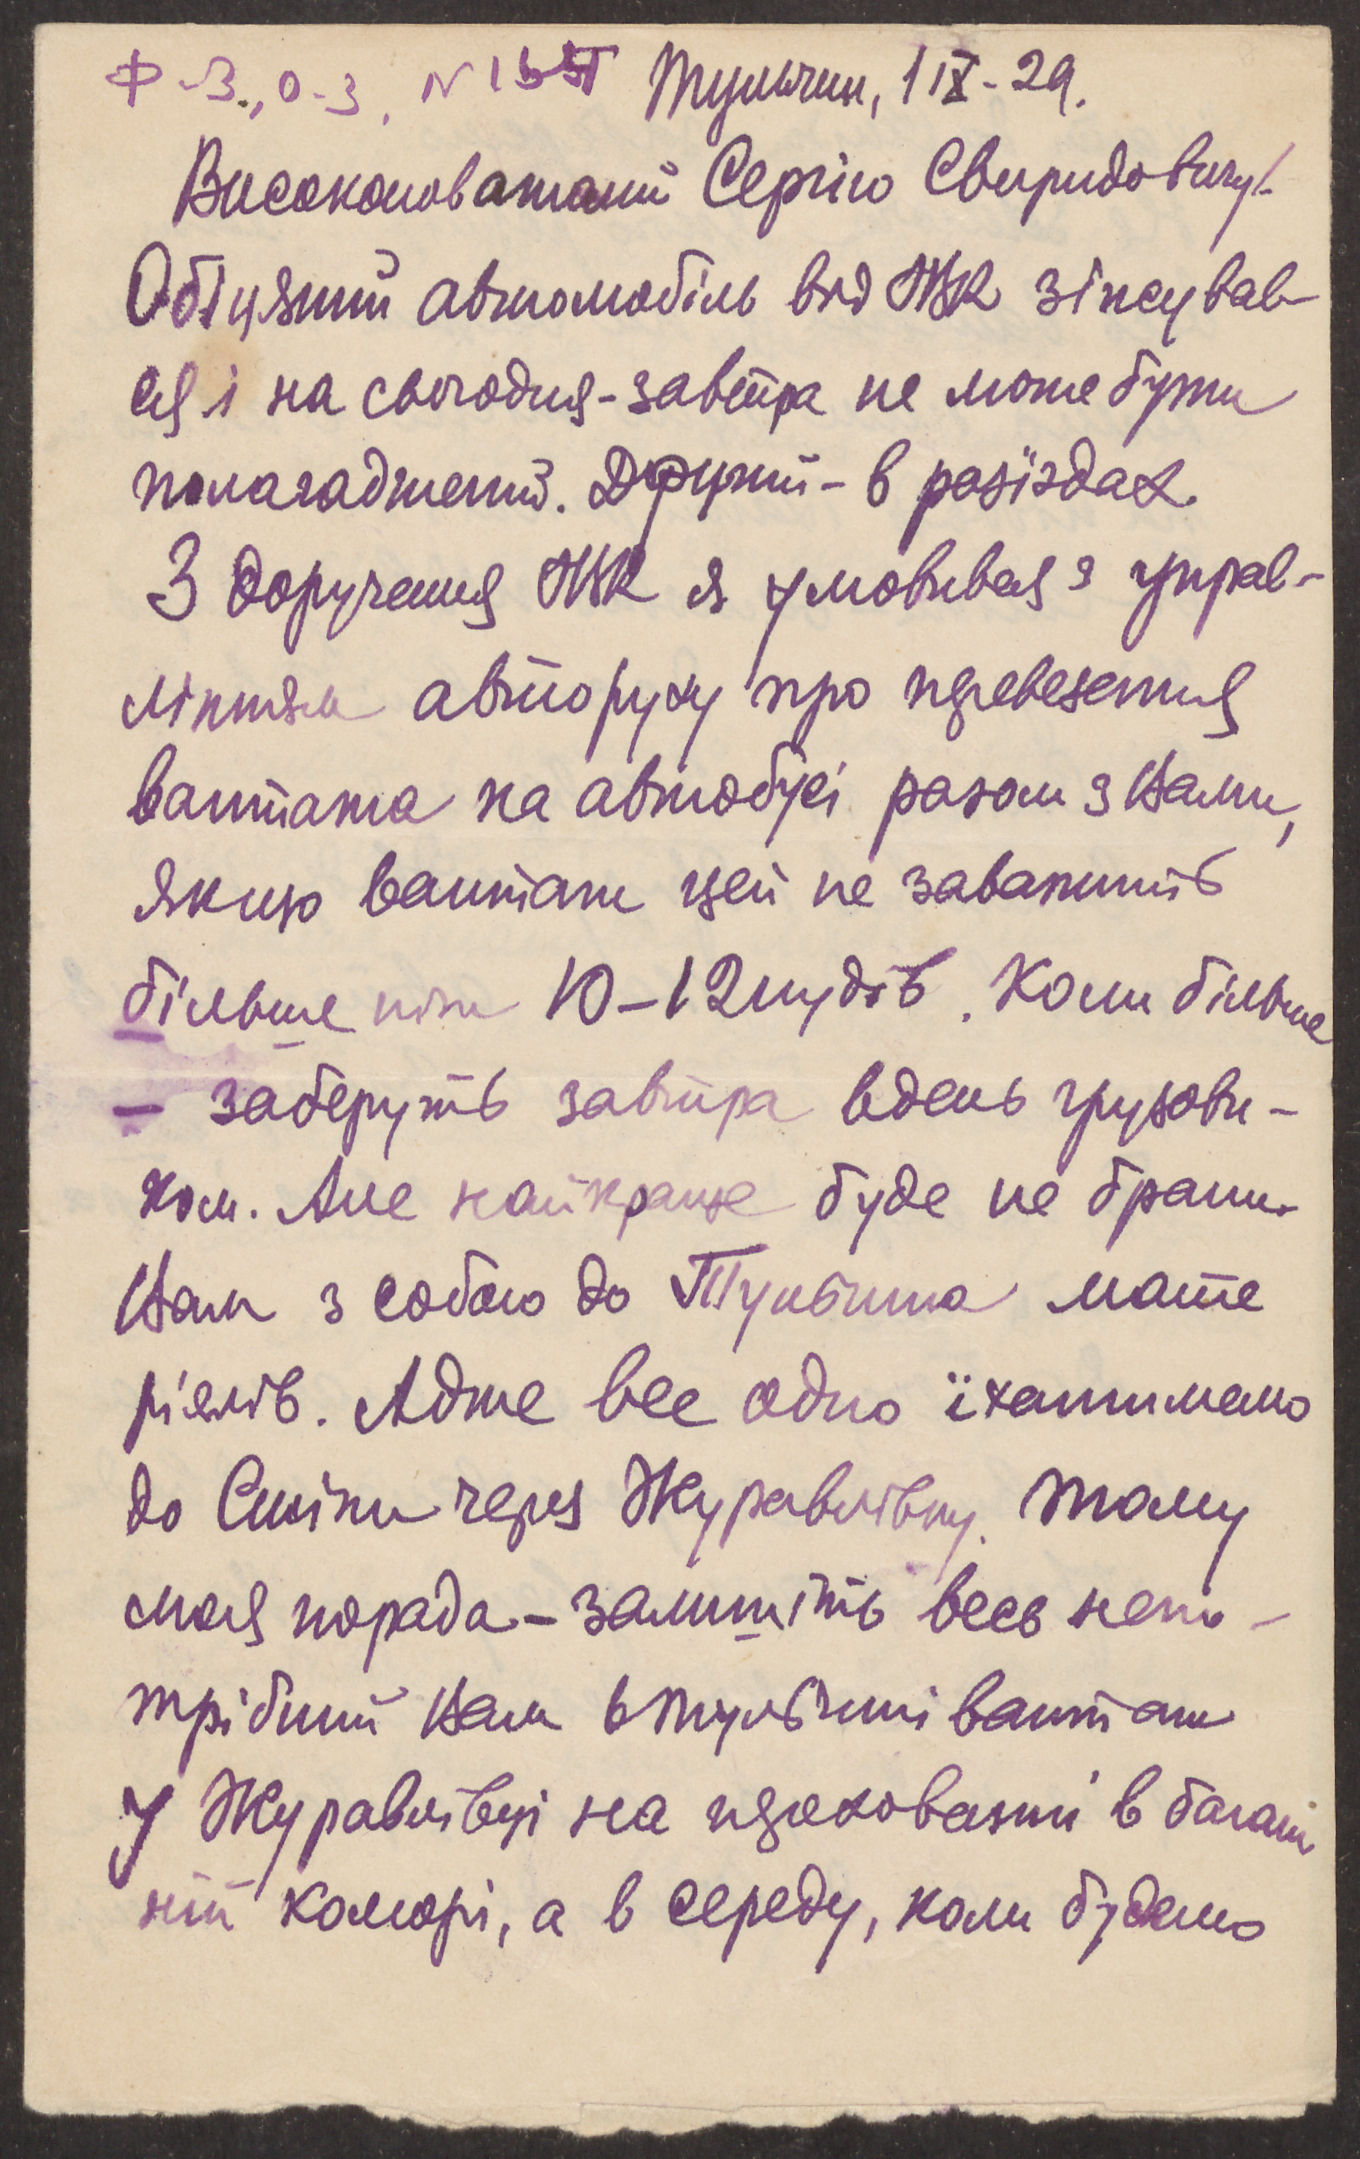 Ф-3., О-3, N 155
Тульчин, 1 IX - 29.
Високоповажаний Сергію Свиридовичу!
Обіцяний автомобіль від ТВК зіпсував-
ся і на сьогодня-завтра не може бути
полагаджений. Другий - в роз'їздах.
З доручення я умовився з управ-
лінням авторуху про перевезення
вантажа на автобусі разом з Вами,
якщо вантаж цей не заважить
більше ніж 10-12 пудів. Коли більше
- заберуть завтра вдень грузови-
ком. Але найкраще буде не брати
Вам з собою до Тульчина мате
ріялів. Адже все одно їхатимемо
до Стіни через Журавлівку. Тому
моя порада - залишіть весь непо-
трібний Вам в Тульчині вантаж
у Журавлівці на переховання в багаж
ній коморі, а в середу, коли будемо